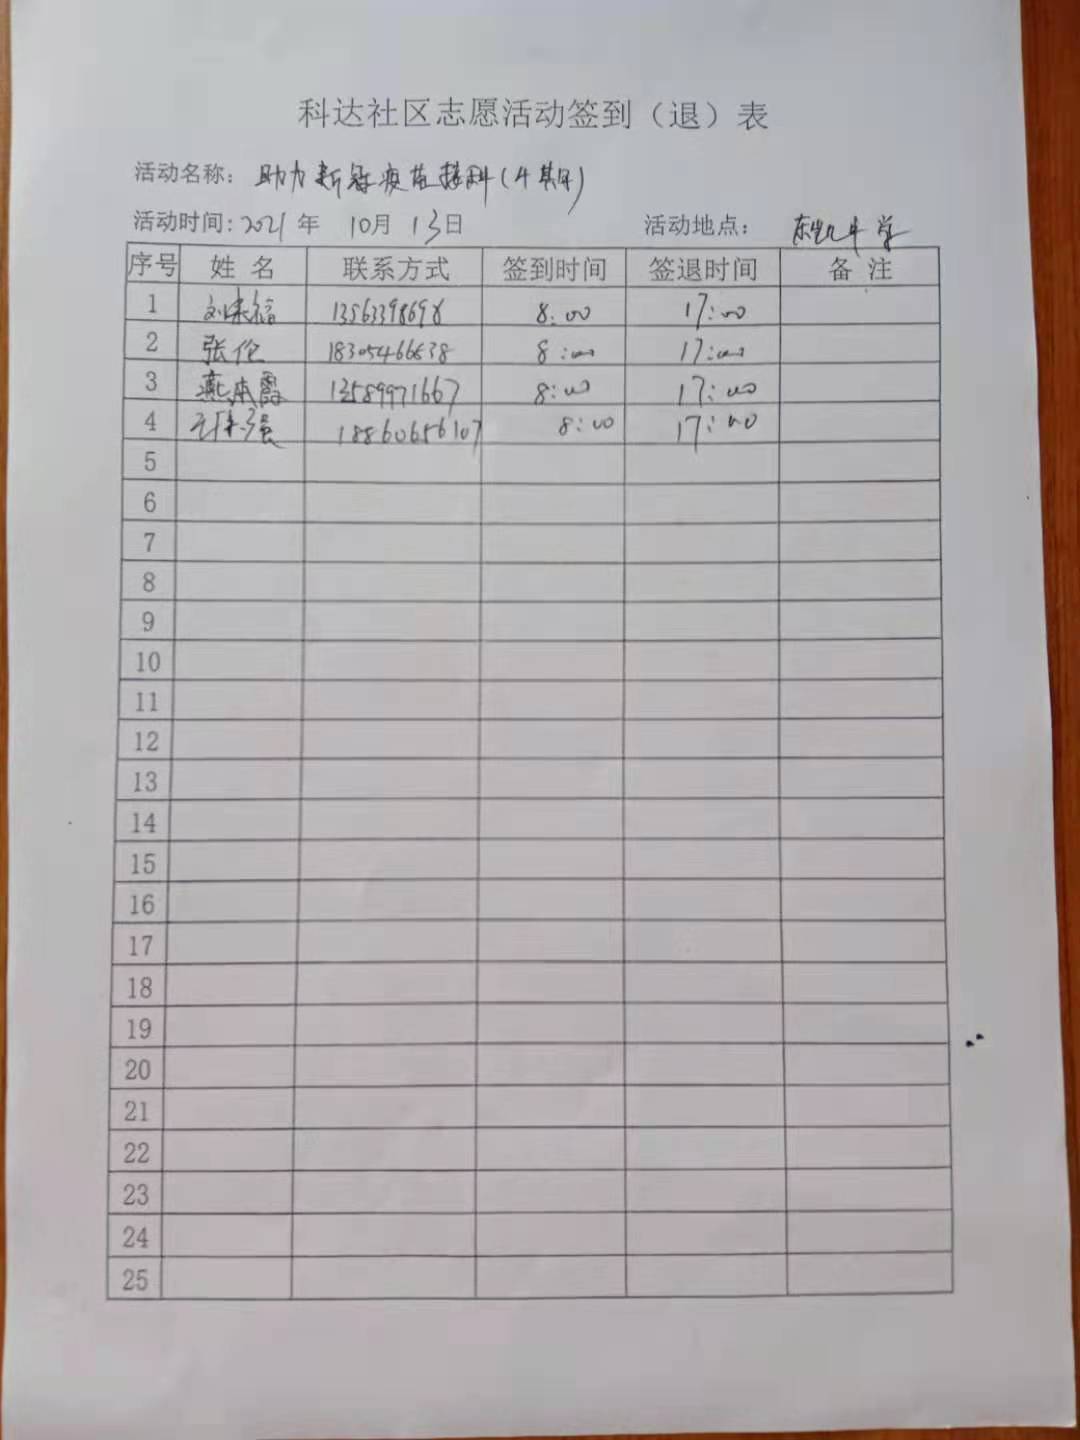 科达社区志愿活动签到（退）表
活动名称：助力新冠疫苗接种(4期)
活动时间:2021年 10月 13日 活动地点：东凯中学
序号 姓名 联系方式 签到时间 签退时间 备注
1 刘 13563398698 8:00 17:00
2 张伦 18305466638 8:00 17:00
3 燕本霞 13589971667 8:00 17:00
4 强 18860656107 8:00 17:00
5
6
7
8
9
10
11
12
13
14
15
16
17
18
19
20
21
22
23
24
25